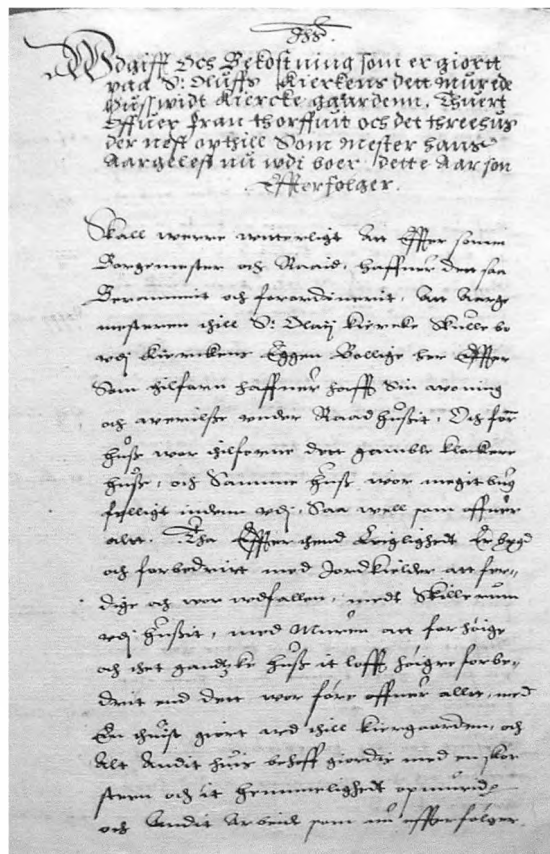 Wdgifft Och Bekostning som er giortt
paa S: Oluffs Kierckens dett Murede
Huss widt Kiercke gaardenn. Thuert
Offuer fran thorffuit och det threehus
der nest op thill Som Mester Hans
nu wdi boer, dette Aar som
Effterfolger.
Skall werre witterligt Att Effter somm
Borgemester och Raaid, haffuer dett saa
Berammit och forordinerit, Att
mesteren thill S: Olaij kiercke Skulle bo
wdj kierckens Eggen Bollige her Effter
Som thilforn haffuer hafft Sin woning
och werilsse wnder Raadhussit, Och
husse wor thilforne dett gamble klockere
husse, och Samme huss wor megit bug
felligt indenn wdj, Saa well som offuer
altt. Tha Effter thend Leiglighedt Er bygd
och forbedritt med Jordkielder att fer-
dige och wor wdfallen, medt Skillerum
wdj hussit, med Muren att forhøige
och thet gandtzke huss it lofft høigre forbe-
drit end dett wor före offuer altt, med
En giort wed thill kiergaarden, och
Alt Andit huis behoff giordis med en skor
sten och it hemmelighedt opmurid
och Andit Arbeide som nu effterfølger